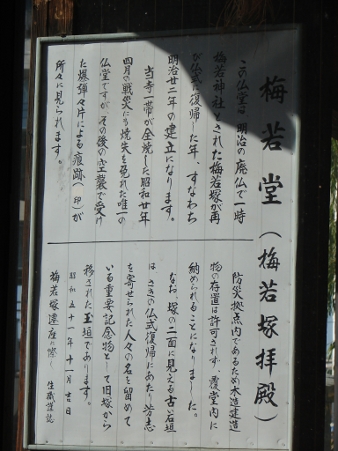 梅若堂(梅若塚拝殿)
この仏堂は明治の廃仏で一時
梅若神社とされた梅若塚が再
び仏式に復帰した年、すなわち
明治廿二年の建立になります。
当寺一帯が全焼した昭和廿年
四月の戦災にも焼失を免れた唯一の
仏堂ですが、その後の空襲で受け
た爆弾々片による痕跡(印)が
所々に見られます。
防災拠点内であるため木造建造
物の存置は許可されず、覆堂内に
納められることになりました。
なお、塚の二面に見える古い石垣
は、さきの仏式復帰にあたり芳志
を寄せられた人々の名を留めて
いる重要記念物として旧塚から
移された玉垣であります。
昭和五十一年十一月吉日
梅若塚遷座の際 住職謹誌